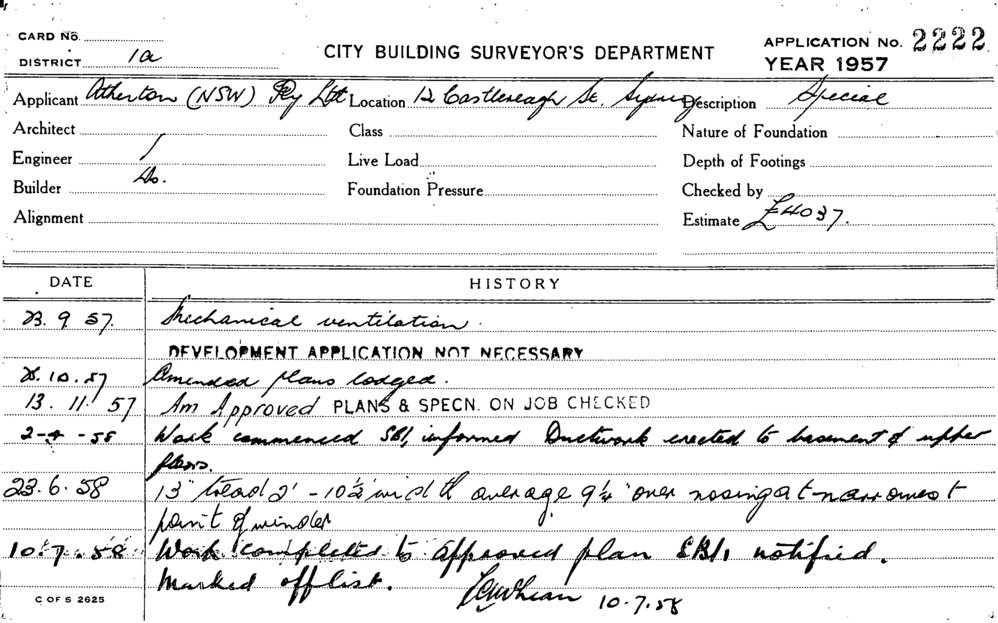 CARD No.
DISTRICT 1a
CITY BUILDING SURVEYOR'S DEPARTMENT
APPLICATION No. 2222
YEAR 1957
Applicant Atherton (NSW) Pty Ltd Location 12 Castlereagh St. Sydney Description Special
Architect Class Nature of Foundation
Engineer / Live Load Depth of Footings
Builder Do. Foundation Pressure Checked by
Alignment Estimate £4037.
DATE HISTORY
23.9.57. Mechanical ventilation.
DEVELOPMENT APPLICATION NOT NECESSARY
10.57 Amended plans lodged.
13.11.57 Am Approved PLANS & SPECN. ON JOB CHECKED
2-4-58 Work commenced SBI, informed Ductwork erected to basement & upper
floors.
23.6.58 13" tread 2'-10½" width average 9¼" over nosing at narrowest
point of winder
10.7.58 Work completed to approved plan SBI, notified.
Marked off list. 10.7.58
C OF S 2625